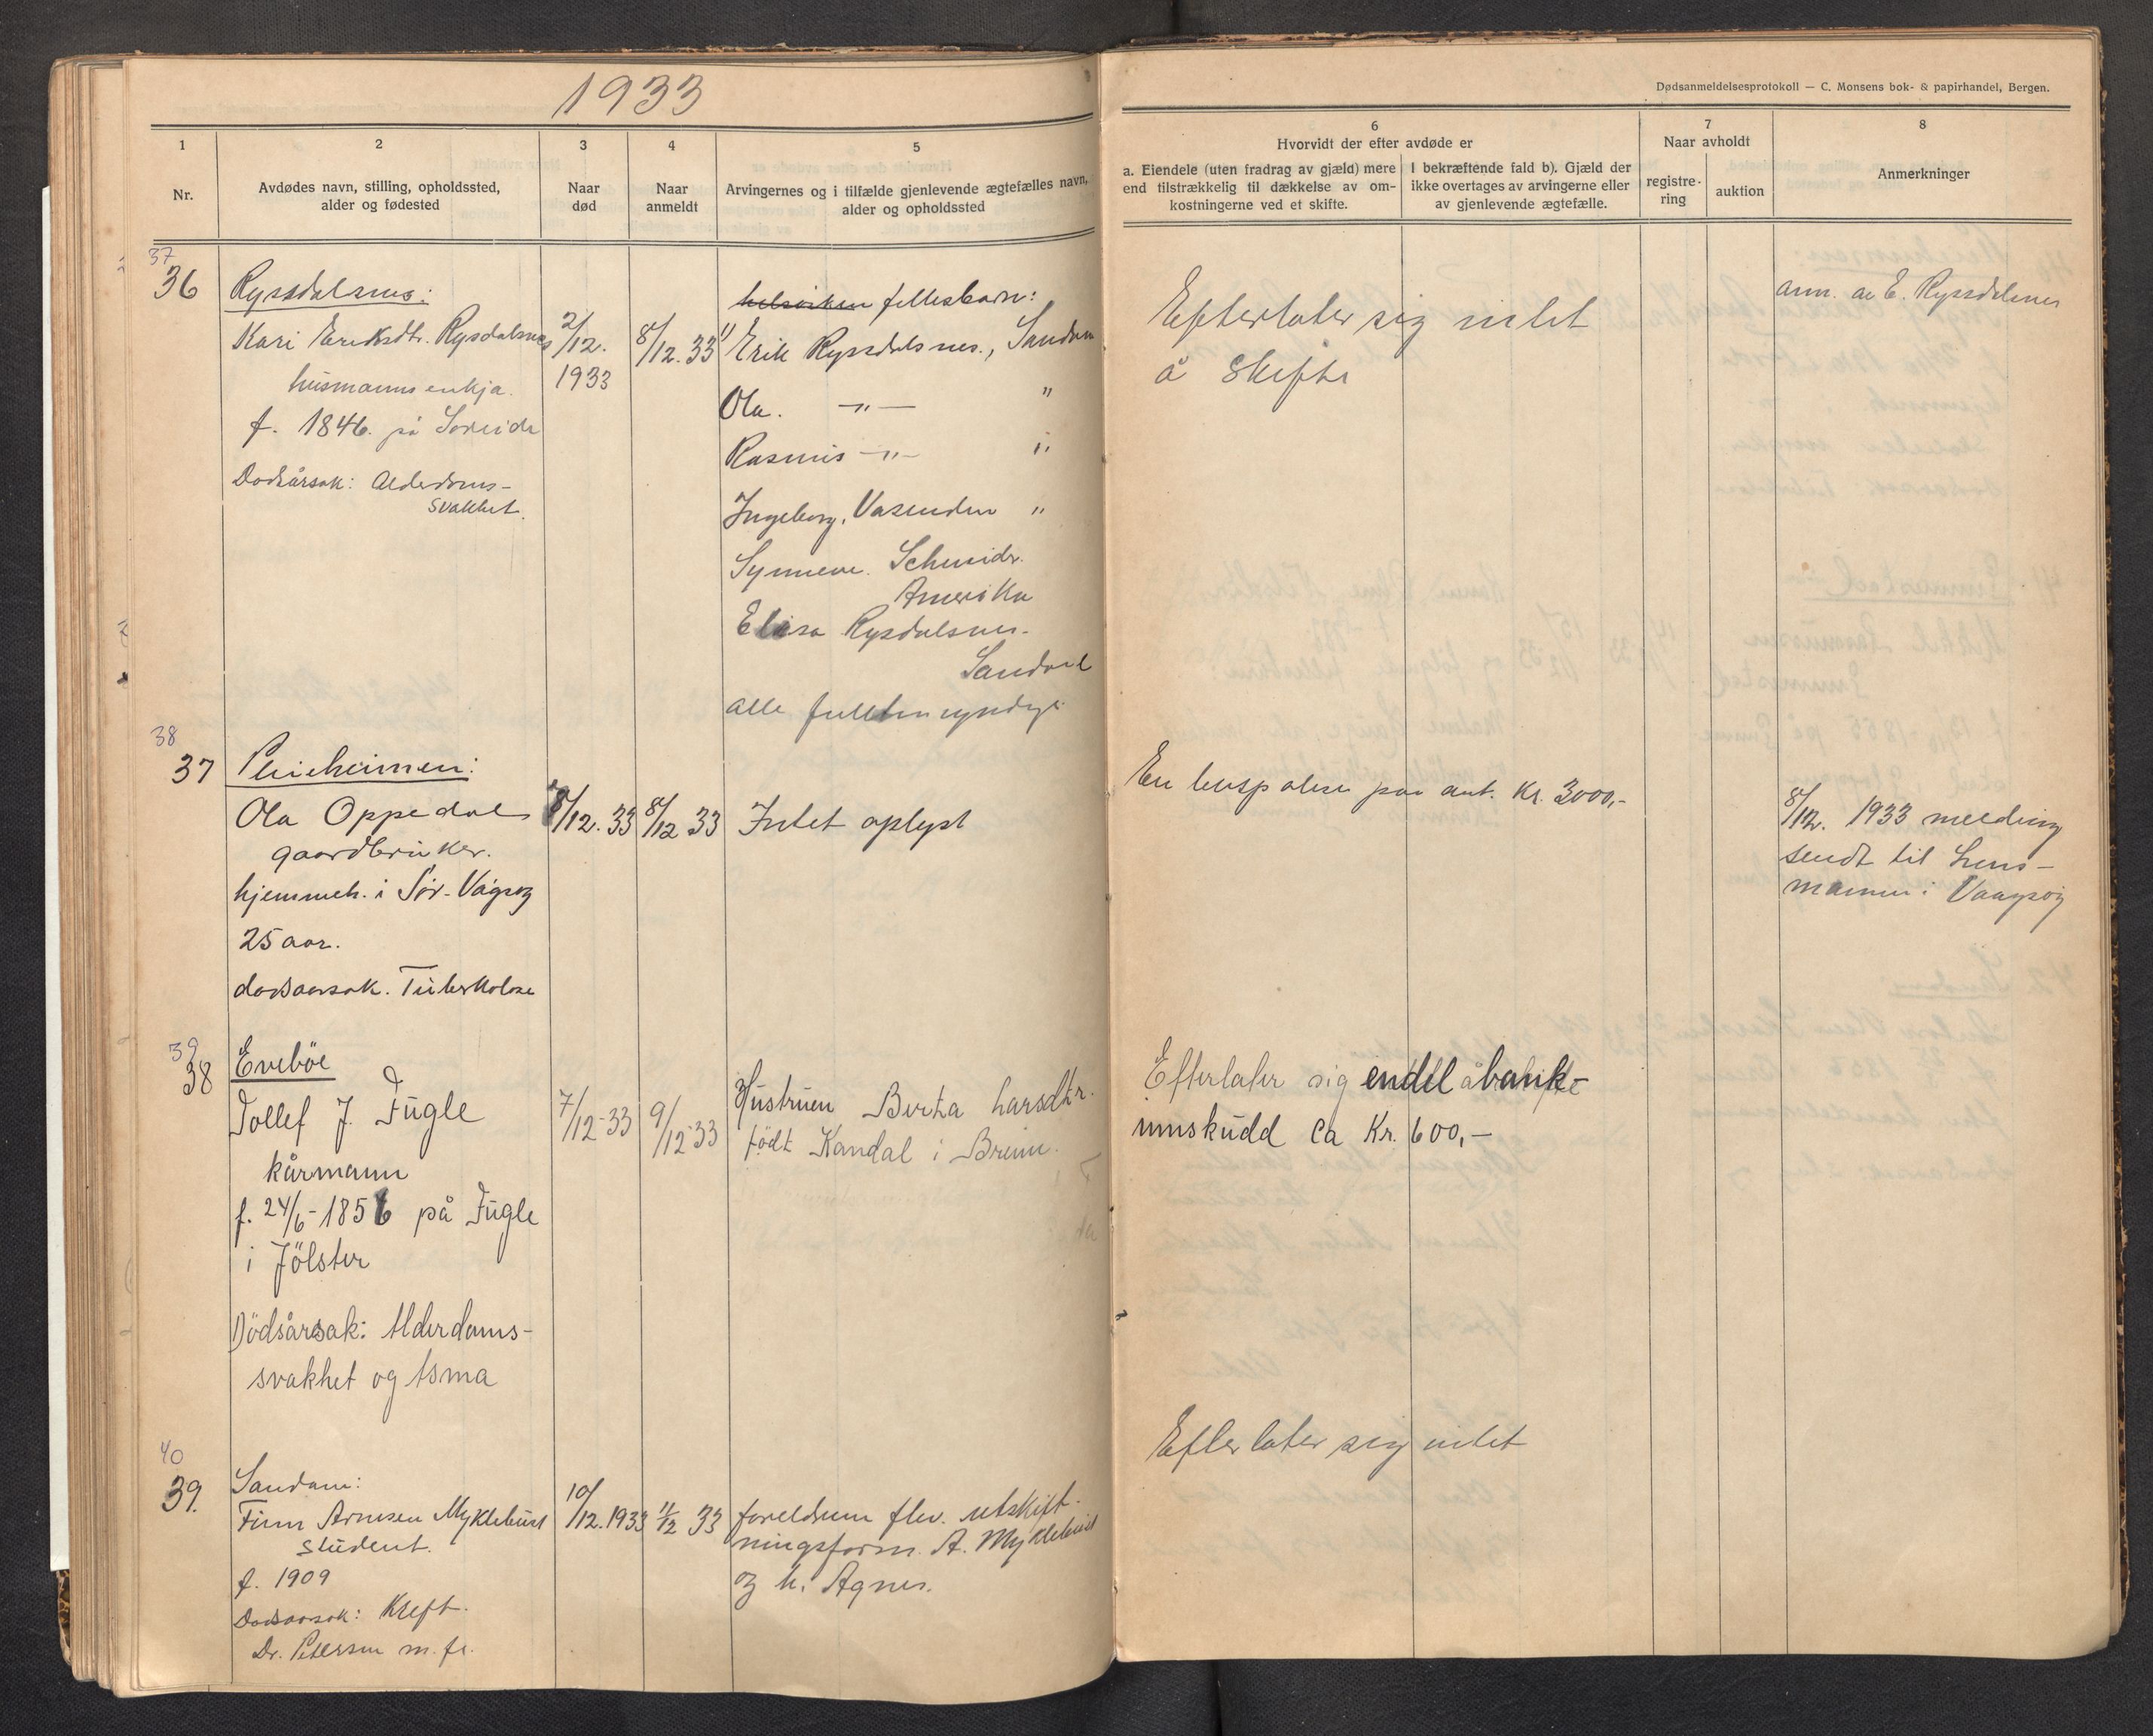 1933
Dødsanmeldelsesprotokoll — C. Monsens bok- & papirhandel, Bergen.
1
Nr.
2
Avdødes navn, stilling, opholdssted,
alder og fødested
3
Naar
død
4
Naar
anmeldt
5
Arvingernes og i tilfælde gjenlevende ægtefælles navn,
alder og opholdssted
6
Hvorvidt der efter avdøde er
a. Eiendele (uten fradrag av gjæld) mere
end tilstrækkelig til dækkelse av om-
kostningerne ved et skifte.
I bekræftende fald b). Gjæld der
ikke overtages av arvingerne eller
av gjenlevende ægtefælle.
7
Naar avholdt
registre-
ring
auktion
8
Anmerkninger
37
36
Ryssdalsnes:
Kari Eriksdtr. Rysdalsnes
husmanns enkja.
f. 1846. på Soreide
Dødsårsak: Alderdoms-
svakhet.
2/12.
1933
8/12. 33
fellesbarn:
1) Erik Ryssdalsnes., Sandane
Ola. —"— "
Rasmus —"— "
Ingeborg, Vasenden "
Synneve. Schmidr.
Amerika
Elisa Rysdalsnes.
Sandane
alle fullmyndige
Efterlater sig intet
å skifte
anm. av E. Ryssdalsnes
38
37
Pleieheimen:
Ola Oppedal
gaardbruker.
hjemmeh. i Sør-Vågsøy
25 aar.
dødsaarsak. Tuberkolose
8/12. 33
8/12 33
Intet oplyst
En livspolise paa ant. Kr. 3000,-
8/12. 1933 melding
sendt til Lens-
mannen i Vaagsøy
39
38
Evebøe
Tollef J. Fugle
kårmann
f. 24/6-1856 på Fugle
i Jölster
Dödsårsak: Alderdoms-
svakhet og Asma
7/12-33
9/12-33
Hustruen Berta Larsdtr.
født Kandal i Breim.
Efterlater sig endel bank-
innskudd ca Kr. 600,-
40
39.
Sandane:
Finn Arnesen Myklebust
student.
f. 1909
Dødsaarsak: Kreft.
Dr. Petersen m. fl.
10/12. 1933
11/12 33
foreldrene flv. utskift-
ningsform. A. Myklebust
og h. Agnes.
Efterlater sig intet